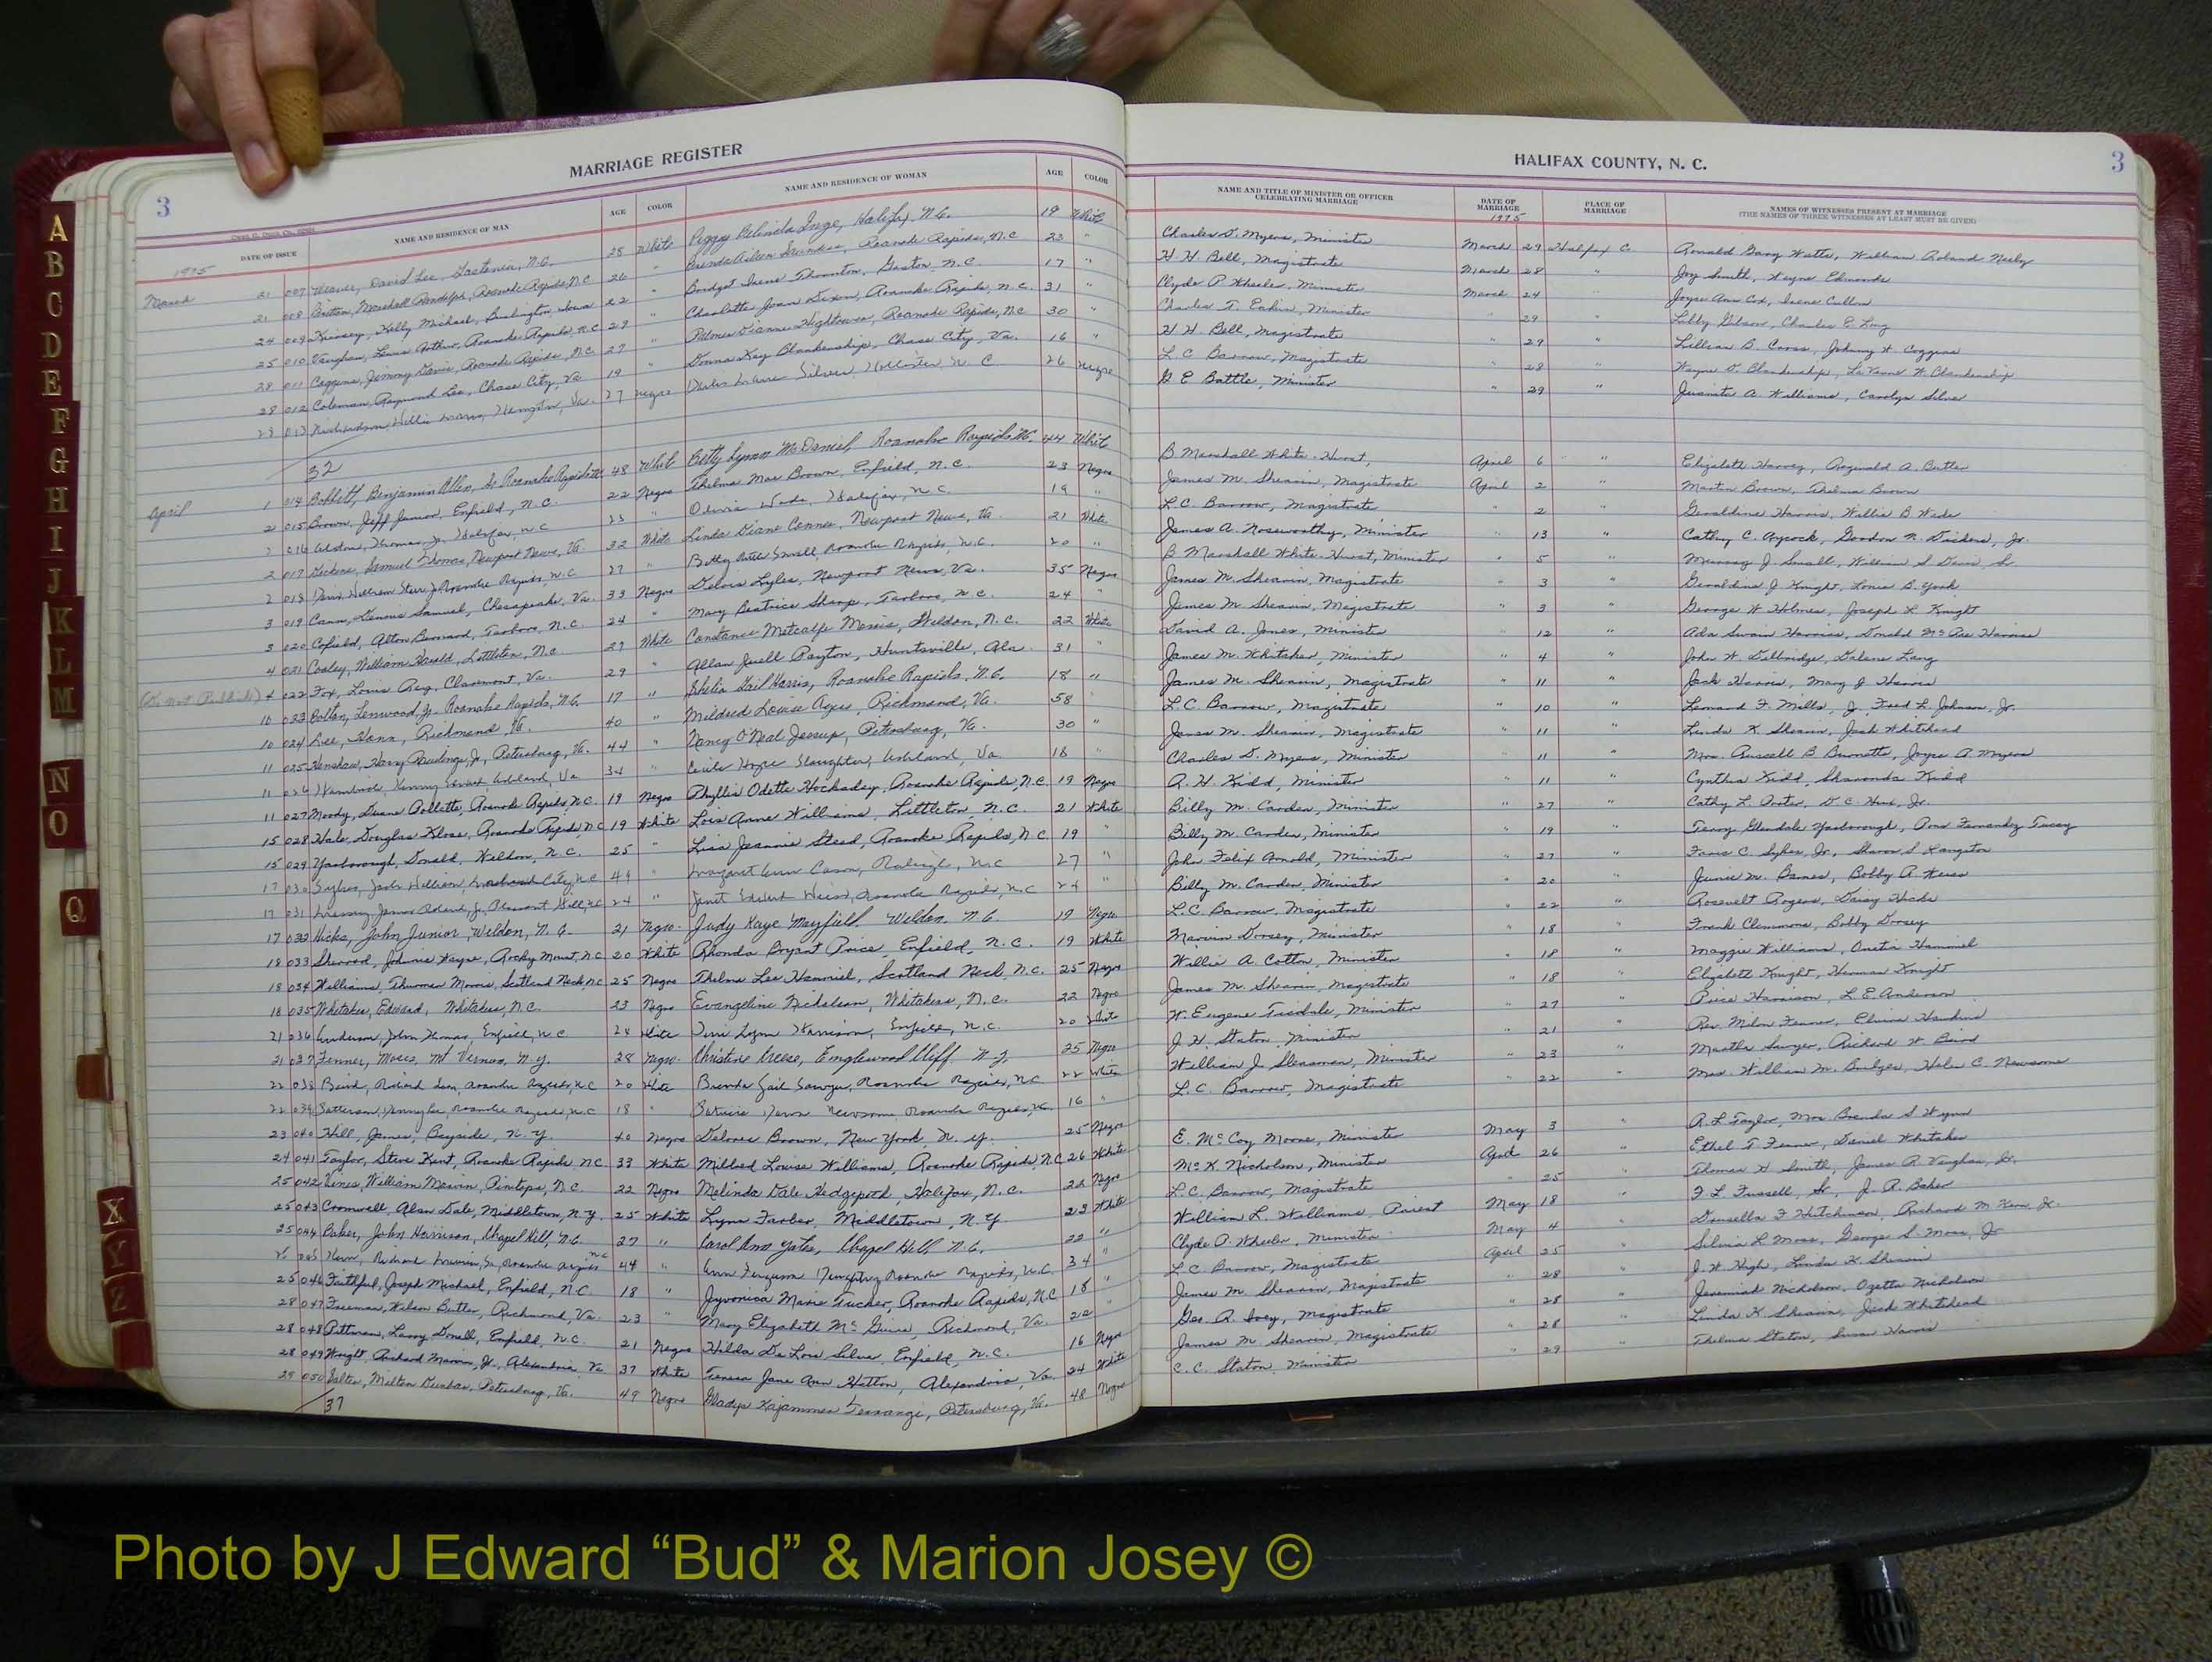 3
MARRIAGE REGISTER
DATE OF ISSUE NAME AND RESIDENCE OF MAN AGE COLOR NAME AND RESIDENCE OF WOMAN AGE COLOR
1975
March 21 007 Weaver, David Lee, Gastonia, N.C. 28 White Peggy Belinda Inge, Halifax, N.C. 19 White
21 008 Marshall Randolph, Roanoke Rapids, N.C. 26 " Brenda Aileen Roanoke Rapids, N.C. 23 "
24 009 Kelly Michael, Burlington, Iowa 22 " Bridget Irene Thornton, Gaston, N.C. 17 "
25 010 Vaughan, Louis Arthur, Roanoke Rapids, N.C. 29 " Charlotte Joan Dixon, Roanoke Rapids, N.C. 31 "
28 011 Coggins, Jimmy Davis, Roanoke Rapids, N.C. 27 " Dianne Hightower, Roanoke Rapids, N.C. 30 "
28 012 Coleman, Raymond Lee, Chase City, Va. 19 " Donna Kay Blankenship, Chase City, Va. 16 "
28 013 Richardson, Willie Hampton, Va. 27 Negro Silver, Hollister, N.C. 26 Negro
32
April 1 014 Bobbitt, Benjamin Allen, Sr. Roanoke Rapids 48 White Betty Lynn McDaniel, Roanoke Rapids N.C. 44 White
2 015 Brown, Jeff Junior, Enfield, N.C. 22 Negro Thelma Mae Brown, Enfield, N.C. 23 Negro
2 016 Alston, Thomas, Jr. Halifax, N.C. 23 " Olivia Wade, Halifax, N.C. 19 "
2 017 Dickens, Samuel Thomas, Newport News, Va. 32 White Linda Diane Conner, Newport News, Va. 21 White
2 018 Davis, William Starr, Jr. Roanoke Rapids, N.C. 27 " Betty Small, Roanoke Rapids, N.C. 20 "
3 019 Cann, Dennis Samuel, Chesapeake, Va. 33 Negro Delois Lyles, Newport News, Va. 35 Negro
3 020 Cofield, Alton Bernard, Tarboro, N.C. 24 " Mary Beatrice Sharp, Tarboro, N.C. 24 "
4 021 Cooley, William Harold, Littleton, N.C. 27 White Constance Metcalfe Morris, Weldon, N.C. 22 White
(Do not Publish) 4 022 Fox, Louis Ray, Claremont, Va. 29 " Allan Juell Payton, Huntsville, Ala. 31 "
10 023 Bolton, Lenwood, Jr. Roanoke Rapids, N.C. 17 " Shelia Gail Harris, Roanoke Rapids, N.C. 18 "
10 024 Lee, Hann, Richmond Va. 40 " Mildred Louise Richmond, Va. 58 "
11 025 Henshaw, Harry Jr., Petersburg, Va. 44 " Nancy O'Neal Jessup, Petersburg, Va. 30 "
11 026 Ashland, Va 34 " Cecile Hope Slaughter, Ashland, Va 18 "
11 027 Moody, Duane Roanoke Rapids, N.C. 19 Negro Phyllis Odette Hockaday, Roanoke Rapids, N.C. 19 Negro
15 028 Hale, Douglas Roanoke Rapids, N.C. 19 White Lois Anne Williams, Littleton, N.C. 21 White
15 029 Yarborough, Donald, Weldon, N.C. 25 " Lisa Jeannie Steed, Roanoke Rapids, N.C. 19 "
17 030 Sykes, Jack William, City, N.C. 44 " Margaret Ann Cason, Raleigh, N.C. 27 "
17 031 Massey, James Jr. Pleasant Hill, N.C. 24 " Janet Roanoke Rapids, N.C. 24 "
17 032 Hicks, John Junior, Weldon, N.C. 21 Negro Judy Kaye Mayfield, Weldon, N.C. 19 Negro
18 033 Sherrod, Johnnie Wayne, Rocky Mount, N.C. 20 White Rhonda Bryant Price, Enfield, N.C. 19 White
18 034 Williams, Thurman Moore, Scotland Neck, N.C. 25 Negro Thelma Lee Hammiel, Scotland Neck, N.C. 25 Negro
18 035 Whitaker, Edward, Whitakers, N.C. 23 Negro Evangeline Nicholson, Whitakers, N.C. 22 Negro
21 036 Anderson, John Thomas, Enfield, N.C. 24 White Terri Lynn Harrison, Enfield, N.C. 20 White
21 037 Fenner, Moses, Mt Vernon, N.Y. 28 Negro Christine Englewood Cliff, N.J. 25 Negro
22 038 Baird, Richard Roanoke Rapids, N.C. 20 White Brenda Gail Sawyer, Roanoke Rapids, N.C. 22 White
22 039 Roanoke Rapids, N.C. 18 " Newsome, Roanoke Rapids, N.C. 16 "
23 040 Hill, James, Bayside, N.Y. 40 Negro Delores Brown, New York, N.Y. 25 Negro
24 041 Taylor, Steve Kent, Roanoke Rapids, N.C. 33 White Mildred Louise Williams, Roanoke Rapids, N.C. 26 White
25 042 Vines, William Marvin, Pinetops, N.C. 22 Negro Melinda Dale Hedgepeth, Halifax, N.C. 22 Negro
25 043 Cromwell, Alan Dale, Middletown, N.Y. 25 White Lynn Farber, Middletown, N.Y. 23 White
25 044 Baker, John Harrison, Chapel Hill, N.C. 27 " Carol Ann Yates, Chapel Hill, N.C. 22 "
25 045 Roanoke Rapids N.C. 44 " Ann Ferguson Roanoke Rapids, N.C. 34 "
25 046 Faithful, Joseph Michael, Enfield, N.C. 18 " Jyvonica Marie Tucker, Roanoke Rapids, N.C. 18 "
28 047 Freeman, Wilson Butler, Richmond, Va. 23 " Mary Elizabeth McGuire, Richmond, Va. 22 "
28 048 Pittman, Larry Donell, Enfield, N.C. 21 Negro Hilda De Lois Silver, Enfield, N.C. 16 Negro
28 049 Wright, Richard Marvin, Jr., Alexandria, Va 37 White Teresa Jane Ann Hatton, Alexandria, Va. 24 White
29 050 Salter, Milton Dunbar, Petersburg, Va. 49 Negro Gladys Kajammer Petersburg, Va. 48 Negro
37
HALIFAX COUNTY, N. C.
3
NAME AND TITLE OF MINISTER OR OFFICER CELEBRATING MARRIAGE DATE OF MARRIAGE PLACE OF MARRIAGE NAMES OF WITNESSES PRESENT AT MARRIAGE
(THE NAMES OF THREE WITNESSES AT LEAST MUST BE GIVEN)
1975
Charles D. Myers, Minister March 29 Halifax C. Ronald Gary Watts, William Roland Neely
H. H. Bell, Magistrate March 28 " Joy Smith, Wayne Edmonds
Clyde P. Wheeler, Minister March 24 " Joyce Ann Cox, Irene Cullom
Charles T. Eakin, Minister 29 " Libby Gibson, Charles E. Long
H H Bell, Magistrate " 29 " Lillian B. Cross, Johnny H. Coggins
L.C. Barrow, Magistrate " 28 " Wayne D. Blankenship, La Verne W. Blankenship
G E Battle, Minister " 29 " Juanita A. Williams, Carolyn Silver
B Marshall White-Hurst, April 6 " Elizabeth Harvey, Reginald A. Butler
James M. Shearin, Magistrate April 2 " Martin Brown, Thelma Brown
L.C. Barrow, Magistrate " 2 " Geraldine Harris, Willie B. Wade
James A. Noseworthy, Minister " 13 " Cathy C. Aycock, Gordon R. Dickens, Jr.
B Marshall White-Hurst, Minister " 5 " Murray J Small, William S Davis Sr.
James M. Shearin, Magistrate " 3 " Geraldine J. Knight, Louis B. York
James M Shearin, Magistrate " 3 " George W Holmes, Joseph L Knight
David A. Jones, Minister " 12 " Ada Swain Harris, Donald McRae Harris
James M. Whitaker, Minister " 4 " John W. Dalene Long
James M. Shearin, Magistrate " 11 " Jack Harris, Mary J Harris
L.C. Barrow, Magistrate " 10 " Lennard F. Mills, Jr. Fred L. Johnson, Jr.
James M. Shearin, Magistrate " 11 " Linda K. Shearin, Jack Whitehead
Charles D. Myers, Minister 11 " Mrs. Russell B Burnette, Joyce A Myers
R. H. Kidd, Minister " 11 " Cynthia Kidd, Sharonda Kidd
Billy M. Carden, Minister " 27 " Cathy L. D. C. Jr.
Billy M. Carden, Minister " 19 " Terry Glendale Yarborough, Fernandez Tracey
John Felix Arnold, Minister " 27 " C. Sykes, Jr., Sharon S Langston
Billy M. Carden, Minister " 20 " Junie M. Barnes, Bobby A.
L.C. Barrow, Magistrate " 22 " Roosevelt Rogers, Daisy Hicks
Marvin Dorsey, Minister " 18 " Frank Clemmons, Bobby Dorsey
Willie A. Cotton, Minister " 18 " Maggie Williams, Hammiel
James M. Shearin, Magistrate " 18 " Elizabeth Knight, Herman Knight
W. Eugene Tisdale, Minister " 27 " Price Harrison, L. E. Anderson
J. H. Staton, Minister " 21 " Rev. Milon Fenner, Hawkins
William J. Minister " 23 " Martha Sawyer, Richard W Baird
L.C. Barrow, Magistrate " 22 " Mrs. William M. Bridges, Helen C. Newsome
E. McCoy Moore, Minister May 3 " R. L Taylor, Mrs Brenda S Wynn
McK. Nicholson, Minister April 26 " Ethel T Daniel Whitaker
L.C. Barrow, Magistrate " 25 " Thomas H Smith, James R. Vaughan, Jr.
William L. Williams, Priest May 18 " F L Fussell, Sr., J. R. Baker
Clyde P. Wheeler, Minister May 4 " F Hutchinson, Richard M. Jr.
L C Barrow, Magistrate April 25 " Silvia L Moss, George S. Moss, Jr
James M. Shearin, Magistrate " 28 " J. W. High, Linda K. Shearin
Geo. R. Ivey, Magistrate " 28 " Jeremiah Nicholson, Ozetta Nicholson
James M Shearin, Magistrate " 28 " Linda K Shearin, Jack Whitehead
C. C. Staton, Minister " 29 " Thelma Staton, Susan Harris
A
B
C
D
E
F
G
H
I
J
K
L
M
N
O
Q
X
Y
Z
Photo by J Edward “Bud” & Marion Josey ©